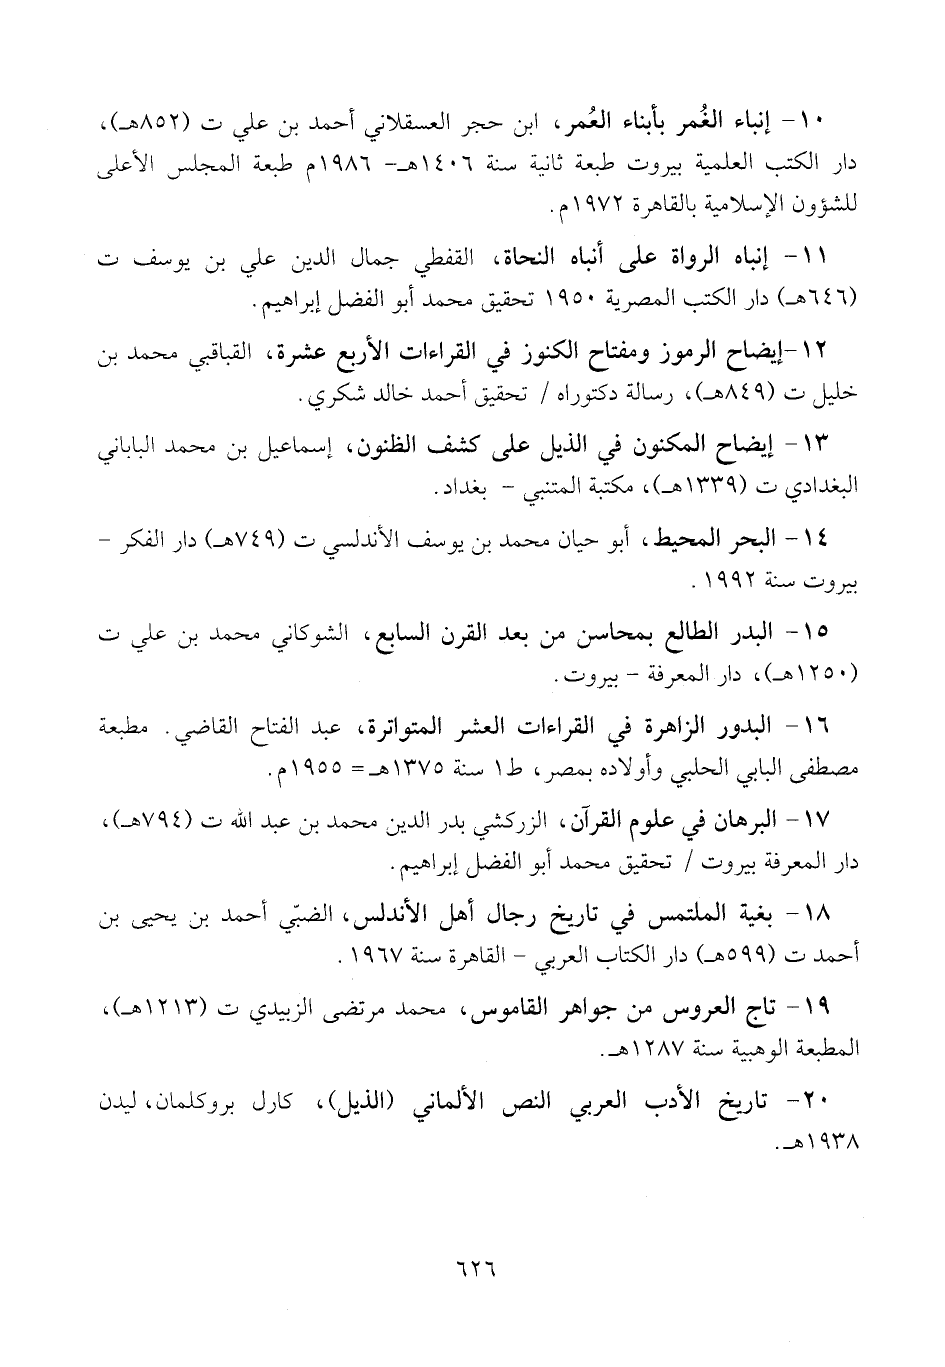 ١٠- إنباء الغُمر بأبناء العُمر، ابن حجر العسقلاني أحمد بن علي ت (٨٥٢هـ)،
دار الكتب العلمية بيروت طبعة ثانية سنة ١٤٠٦هـ- ١٩٨٦م طبعة المجلس الأعلى
للشؤون الإسلامية بالقاهرة ١٩٧٢م.
١١- إنباه الرواة على أنباه النحاة، القفطي جمال الدين علي بن يوسف ت
(٦٤٦هـ) دار الكتب المصرية ١٩٥٠ تحقيق محمد أبو الفضل إبراهيم.
١٢-إيضاح الرموز ومفتاح الكنوز في القراءات الأربع عشرة، القباقبي محمد بن
خليل ت (٨٤٩هـ)، رسالة دكتوراه / تحقيق أحمد خالد شكري.
١٣- إيضاح المكنون في الذيل على كشف الظنون، إسماعيل بن محمد الباباني
البغدادي ت (١٣٣٩هـ)، مكتبة المتنبي - بغداد.
١٤- البحر المحيط، أبو حيان محمد بن يوسف الأندلسي ت (٧٤٩هـ) دار الفكر -
بيروت سنة ١٩٩٢.
١٥- البدر الطالع بمحاسن من بعد القرن السابع، الشوكاني محمد بن علي ت
(١٢٥٠هـ)، دار المعرفة - بيروت.
١٦- البدور الزاهرة في القراءات العشر المتواترة، عبد الفتاح القاضي. مطبعة
مصطفى البابي الحلبي وأولاده بمصر، ط١ سنة ١٣٧٥هـ= ١٩٥٥م.
١٧- البرهان في علوم القرآن، الزركشي بدر الدين محمد بن عبد الله ت (٧٩٤هـ)،
دار المعرفة بيروت / تحقيق محمد أبو الفضل إبراهيم.
١٨- بغية الملتمس في تاريخ رجال أهل الأندلس، الضبّي أحمد بن يحيى بن
أحمد ت (٥٩٩هـ) دار الكتاب العربي - القاهرة سنة ١٩٦٧.
١٩- تاج العروس من جواهر القاموس، محمد مرتضى الزبيدي ت (١٢١٣هـ)،
المطبعة الوهبية سنة ١٢٨٧هـ.
٢٠- تاريخ الأدب العربي النص الألماني (الذيل)، كارل بروكلمان، ليدن
١٩٣٨هـ.
٦٢٦